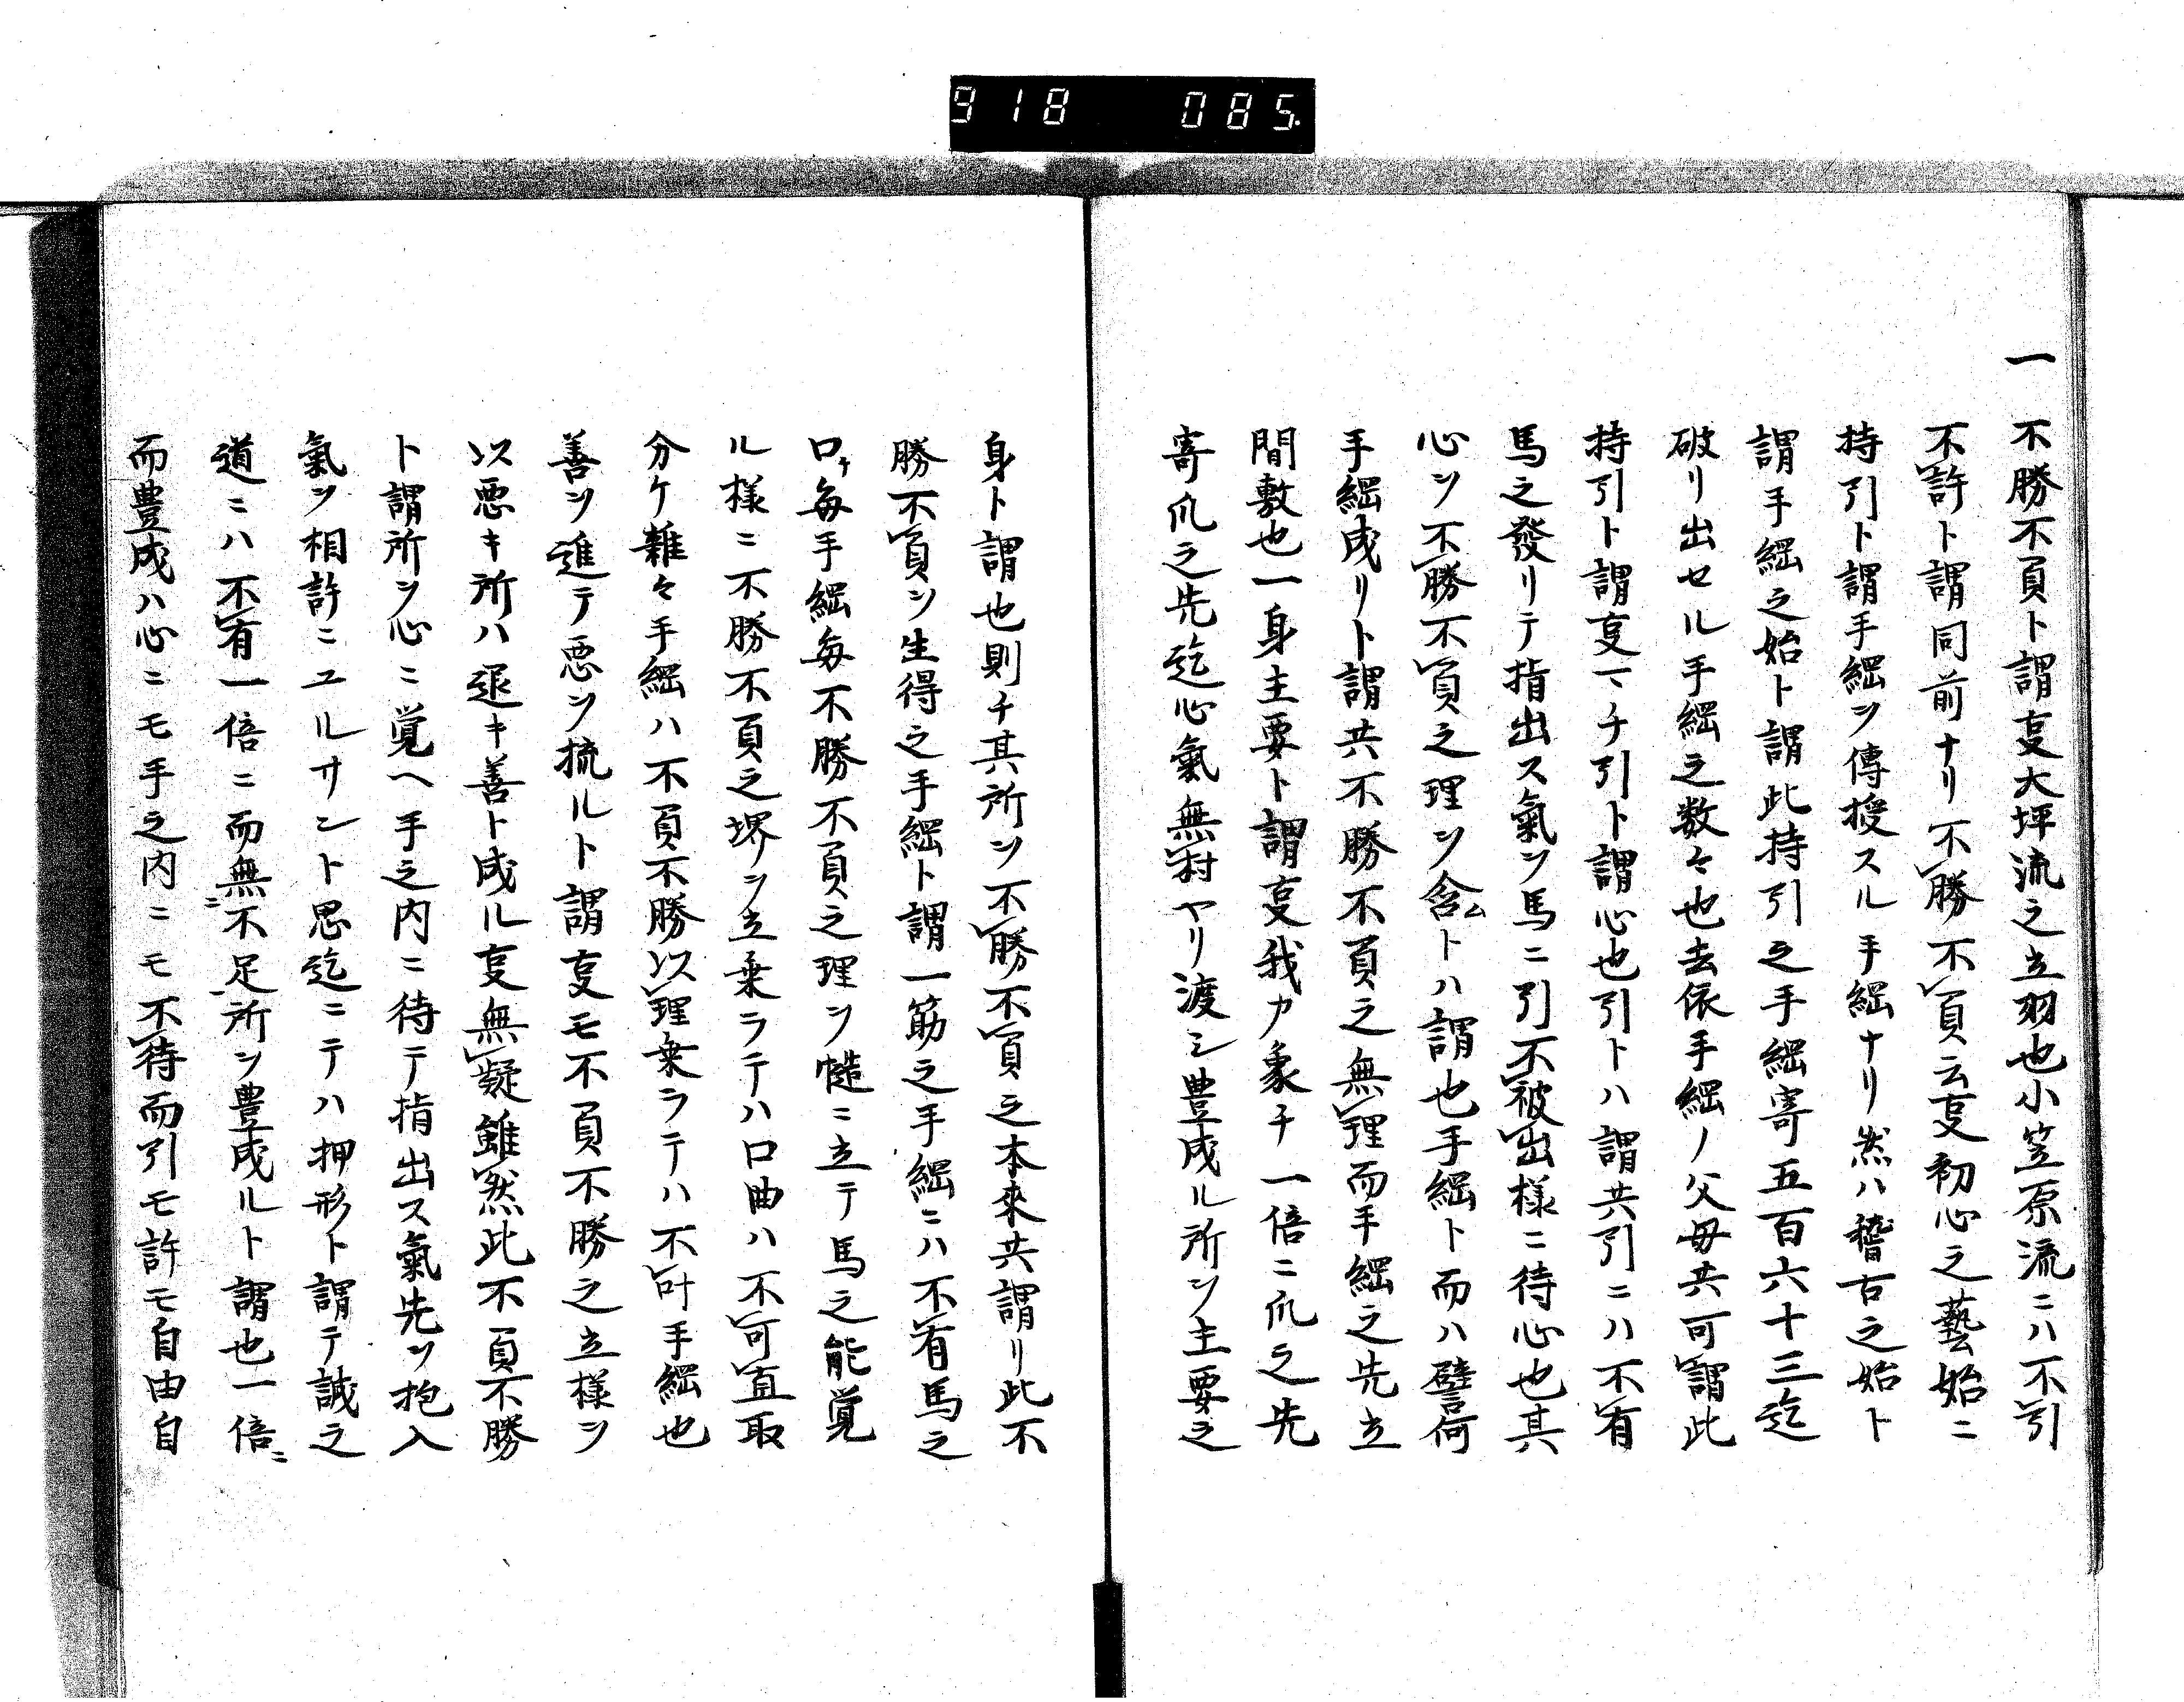 918 085.
一 不勝不負ト謂叓大坪流之立羽也小笠原流ニハ不引
不許ト謂同前ナリ不勝不負云叓初心之藝始ニ
持引ト謂手綱ヲ傳授スル手綱ナリ然ハ稽古之始ト
謂手綱之始ト謂此持引之手綱寄五百六十三迄
破リ出セル手綱之数々也去依手綱ノ父母共可謂此
持引ト謂叓マチ引ト謂心也引トハ謂共引ニハ不有
馬之發リテ指出ス氣ヲ馬ニ引不被出様ニ待心也其
心ヲ不勝不負之理ヲ含ムトハ謂也手綱ト而ハ譬何
手綱成リト謂共不勝不負之無理而手綱之先立
間敷也一身主要ト謂叓我カ象チ一倍ニ爪之先
寄爪之先迄心氣無村ヤリ渡シ豊成ル所ヲ主要之
身ト謂也則チ其所ヲ不勝不負之本来共謂リ此不
勝不負ヲ生得之手綱ト謂一筋之手綱ニハ不有馬之
口チ毎手綱毎不勝不負之理ヲ慥ニ立テ馬之能覚
ル様ニ不勝不負之堺ヲ立乗ラテハ口曲ハ不可直取
分ケ難々手綱ハ不負不勝以理乗ラテハ不叶手綱也
善ヲ進テ悪ヲ梳ルト謂叓モ不負不勝之立様ヲ
以悪キ所ハ退キ善ト成ル叓無疑雖然此不負不勝
ト謂所ヲ心ニ覚ヘ手之内ニ待テ指出ス氣先ヲ抱入
氣ヲ相許ニユルサント思迄ニテハ押形ト謂テ誠之
道ニハ不有一倍ニ而無ニ不足所ヲ豊成ルト謂也一倍ニ
而豊成ハ心ニモ手之内ニモ不待而引モ許モ自由自